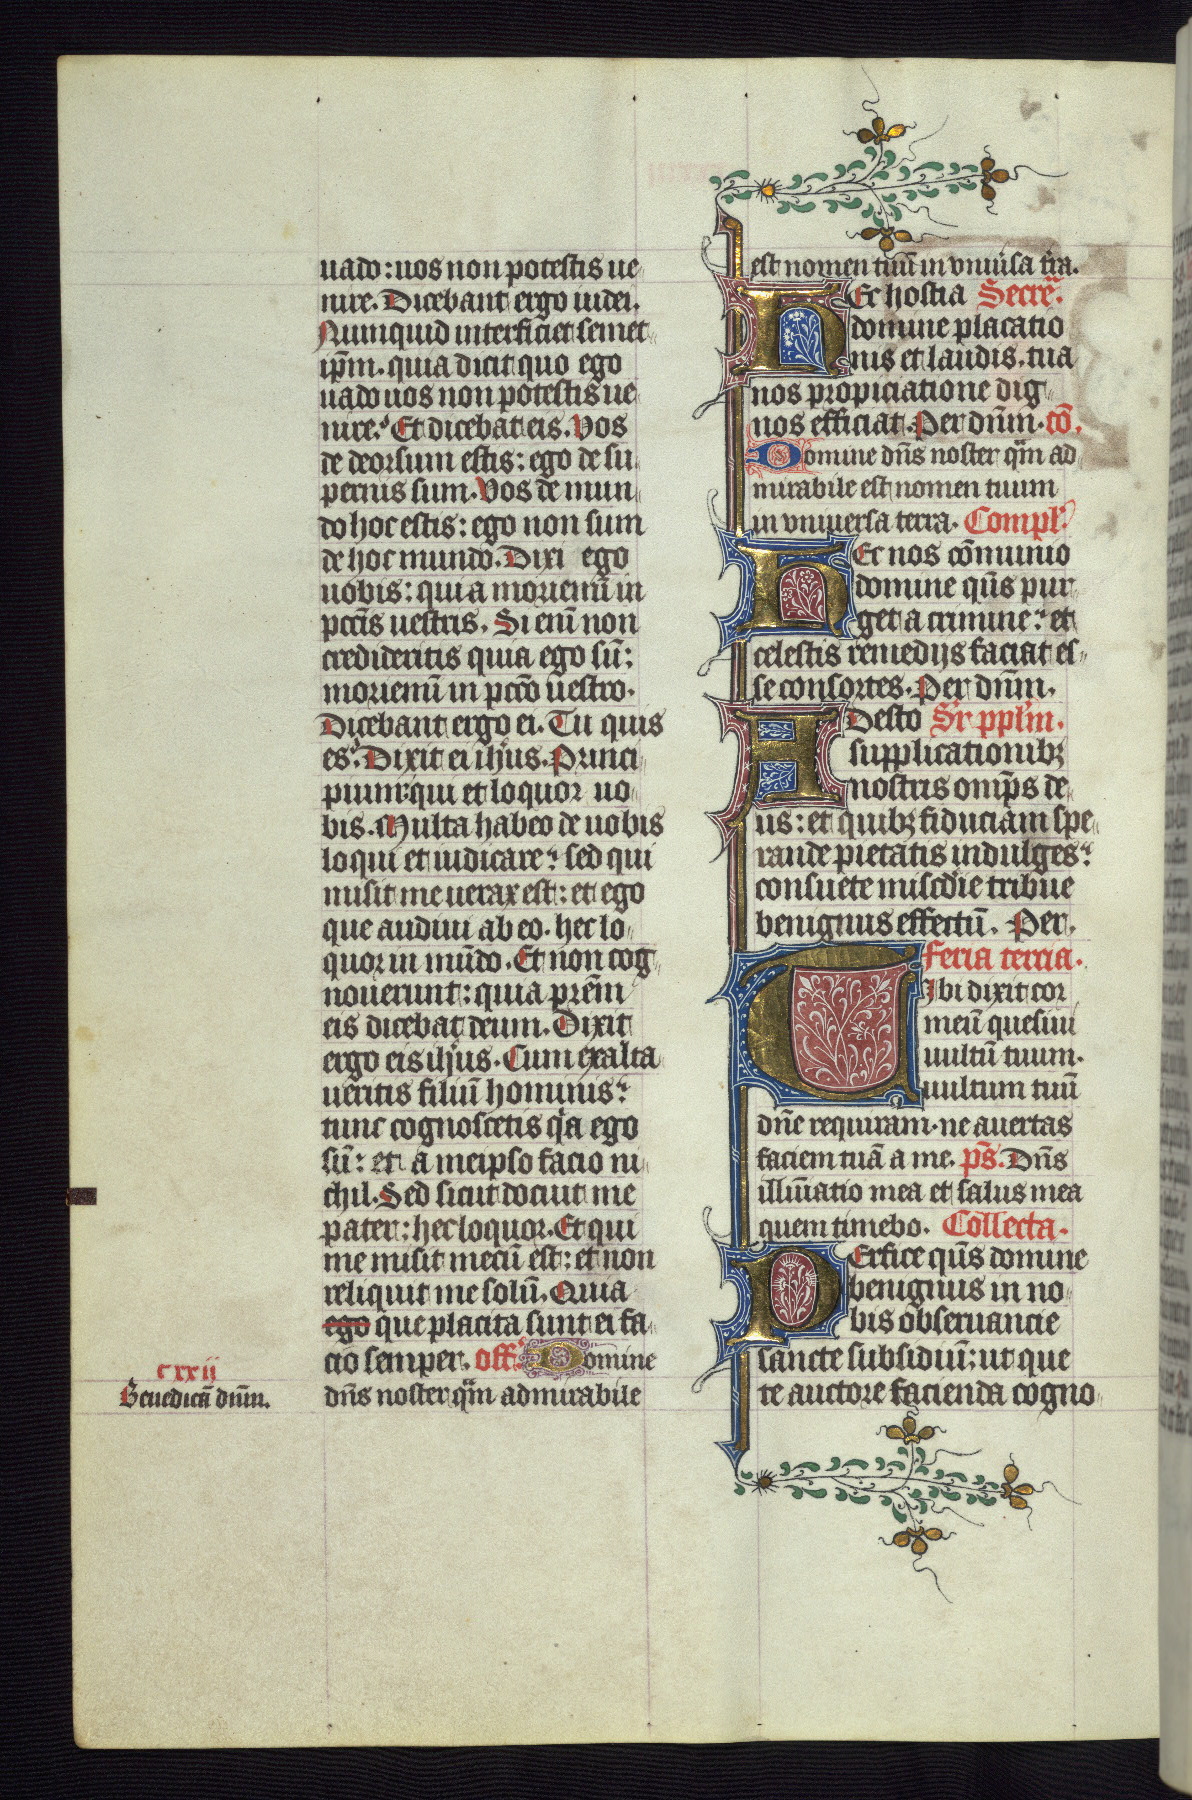 uado: uos non potestis ue
nire. Dicebant ergo iudei.
Nunquid interficiet semet
ip̄m. quia dicit quo ego
uado uos non potestis ue
nire. Et dicebat eis. Vos
de deorsum estis: ego de su
pernis sum. Vos de mun
do hoc estis: ego non sum
de hoc mundo. Dixi ego
uobis: quia moriemī in
pccīs uestris. Si enī non
credideritis quia ego sū:
moriemī in pccō uestro.
Dicebant ergo ei. Tu quis
es. Dixit ei ih̄us. Princi
pium: qui et loquor uo
bis. Multa habeo de uobis
loqui et iudicare: sed qui
misit me uerax est: et ego
que audiui ab eo. hec lo
quor in mūdo. Et non cog
nouerunt: quia prēm
eis dicebat deum. Dixit
ergo eis ih̄us. Cum exalta
ueritis filiū hominis:
tunc cognoscetis qa ego
sū: et a meipso facio ni
chil. Sed sicut docuit me
pater: hec loquor. Et qui
me misit mecū est: et non
reliquit me solū. Quia
ego que placita sunt ei fa
cio semper. off. Domine
dn̄s noster qm̄ admirabile
cxxij
Benedicā dn̄m.
est nomen tuū in vniūsa tr̄a.
Ec hostia Secrē.
domine placatio
nis et laudis. tua
nos propiciatione dig
nos efficiat. Per dn̄m. cō.
Domine dn̄s noster qm̄ ad
mirabile est nomen tuum
in vniuersa terra. Compl.
HEc nos cōmunio
domine qūs pur
get a crimine: et
celestis remedijs faciat es
se consortes. Per dn̄m.
ADesto Sr̄ pplm̄.
supplicationibꝫ
nostris omp̄s de
us: et quibꝫ fiduciam spe
rande pietatis indulges:
consuete misc̄die tribue
benignus effectū. Per.
feria tercia.
TIbi dixit cor
meū quesiui
uultū tuum.
uultum tuū
dn̄e requiram. ne auertas
faciem tuā a me. ps̄. Dn̄s
illūiatio mea et salus mea
quem timebo. Collecta.
PErfice qūs domine
benignus in no
bis obseruancie
sancte subsidiū: ut que
te auctore facienda cogno